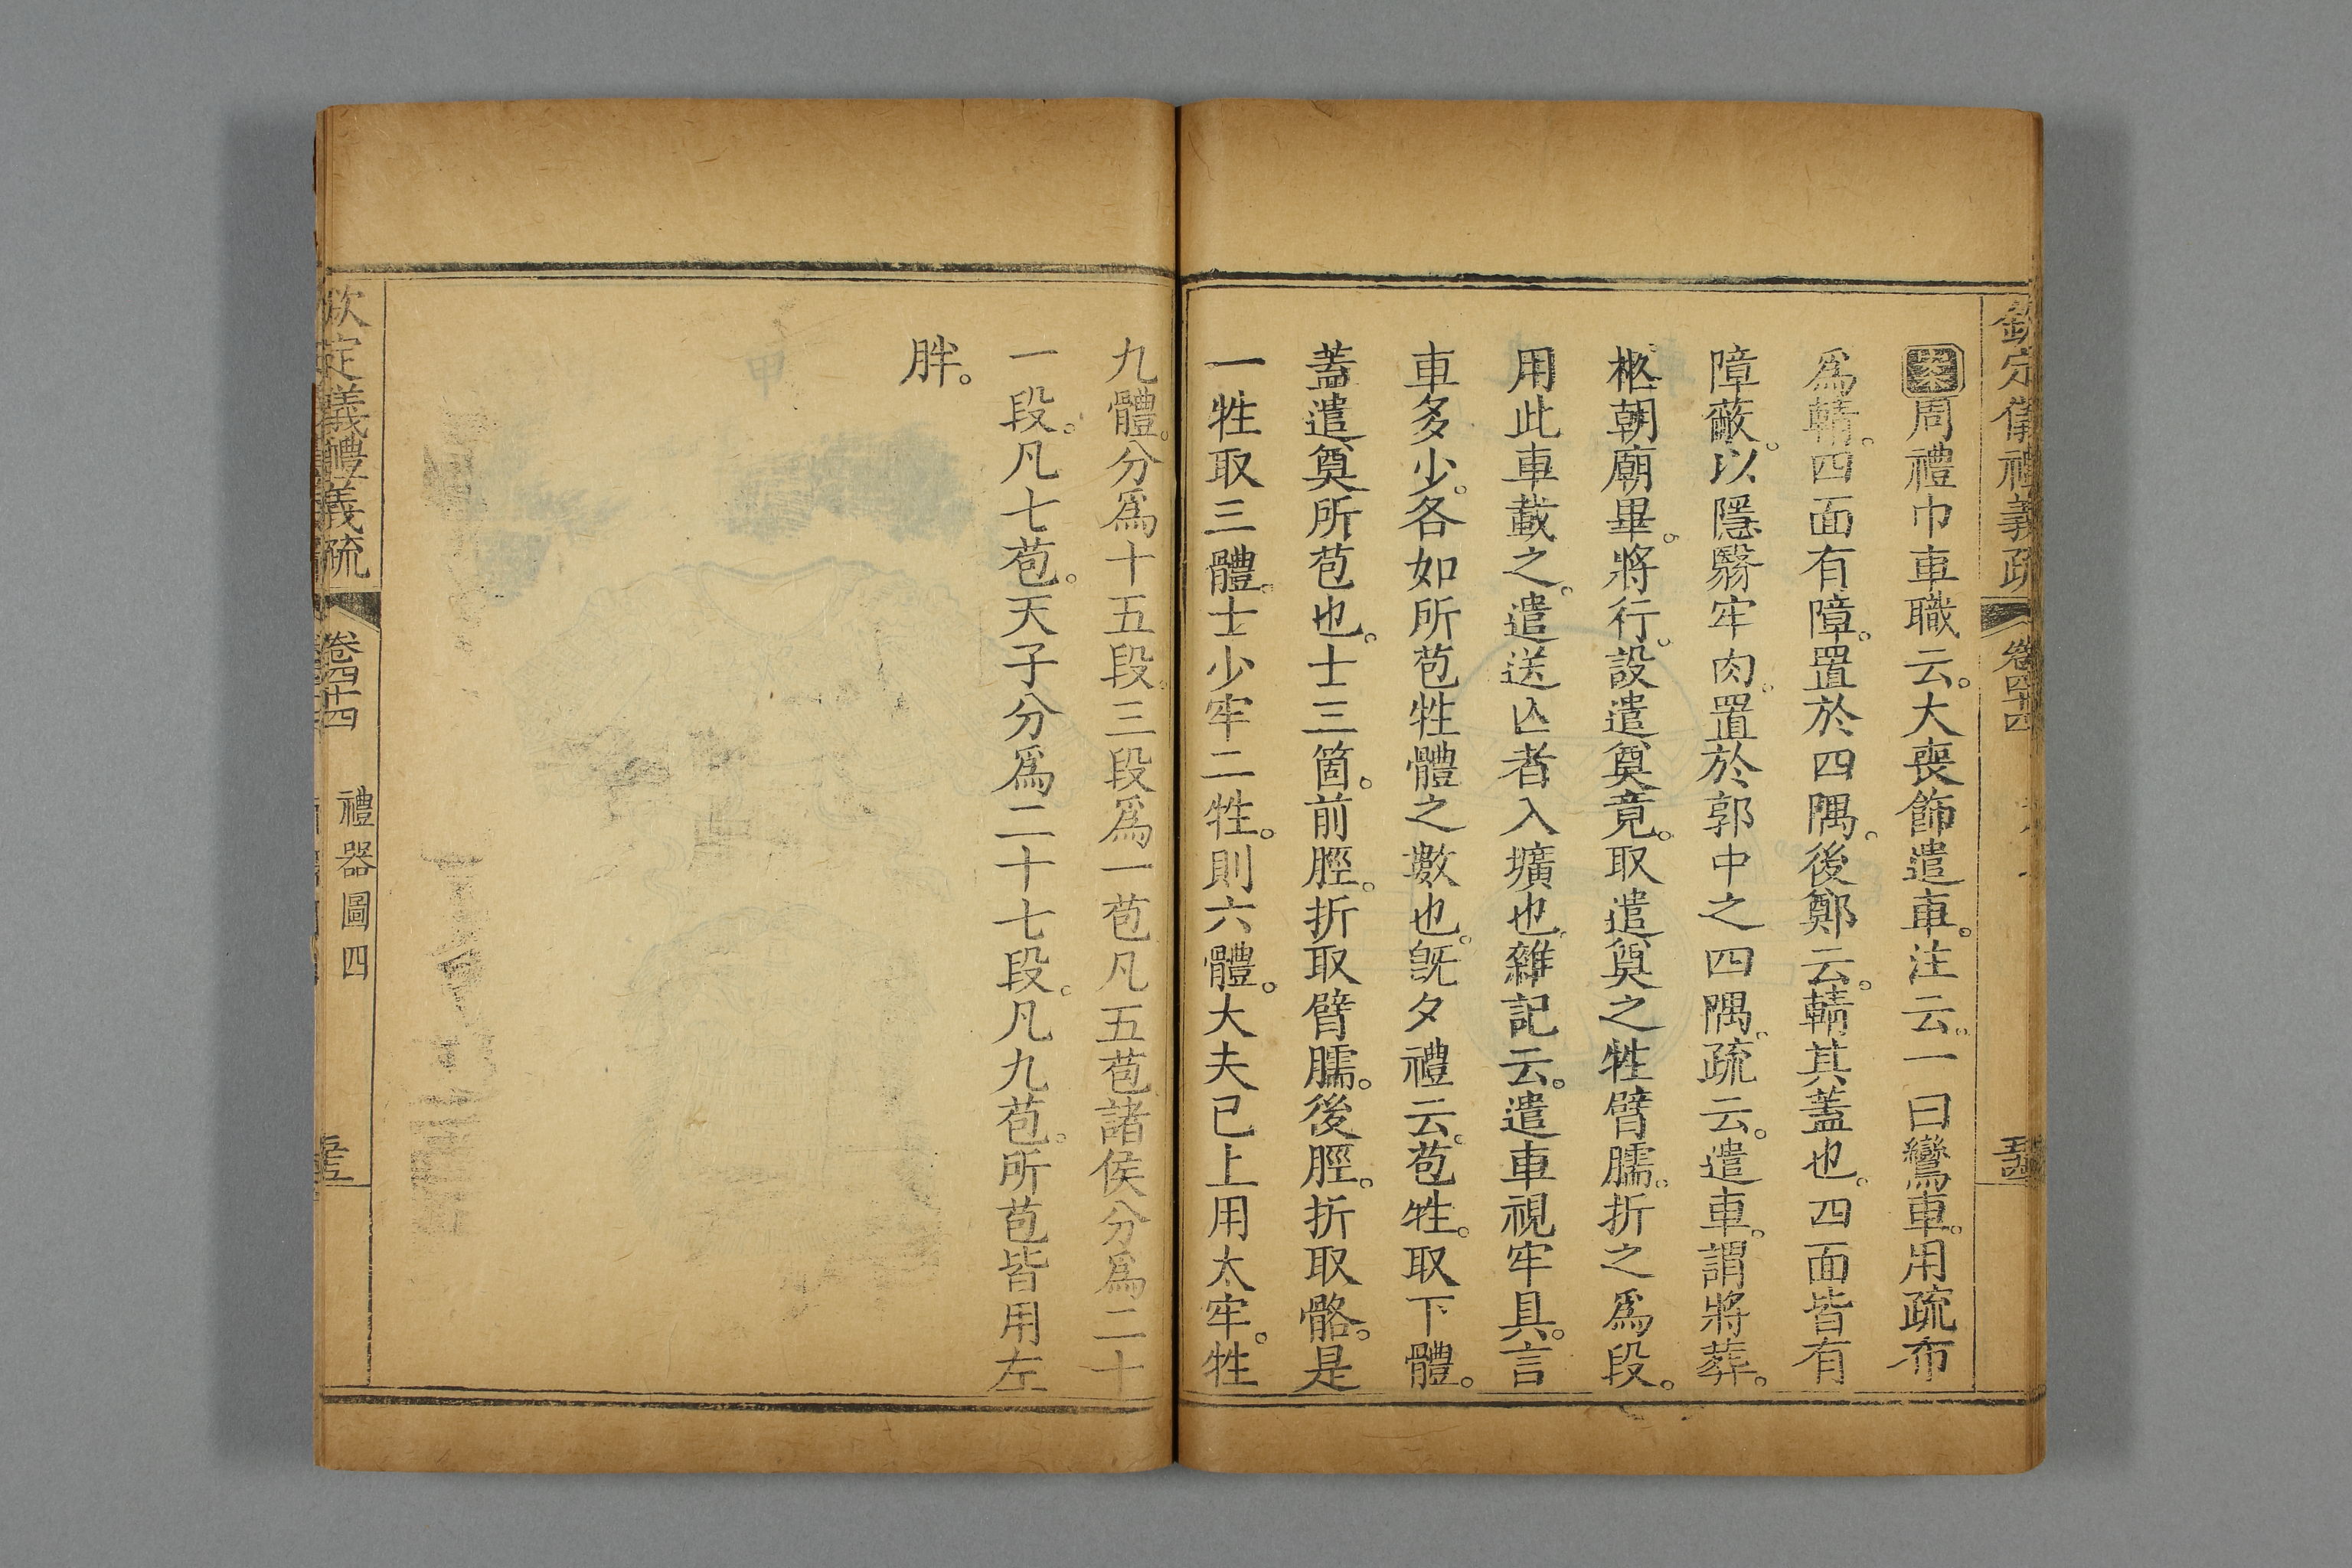 欽定儀禮義疏 卷四十四
案周禮巾車職云。大喪飾遣車。注云。一曰鸞車。用疏布
爲輤。四面有障。置於四隅。後鄭云。輤其蓋也。四面皆有
障蔽。以隱翳牢肉。置於郭中之四隅。疏云。遣車。謂將葬。
柩朝廟畢。將行。設遣奠竟。取遣奠之牲臂臑。折之爲段。
用此車載之。遣送亾者入壙也。雜記云。遣車視牢具。言
車多少。各如所苞牲體之數也。旣夕禮云。苞牲。取下體。
蓋遣奠所苞也。士三箇。前脛。折取臂臑。後脛。折取骼。是
一牲取三體。士少牢二牲。則六體。大夫已上用太牢。牲
九體。分爲十五段。三段爲一苞凡五苞諸侯分爲二十
一段。凡七苞。天子分爲二十七段。凡九苞。所苞皆用左
胖。
欽定儀禮義疏 卷四十四 禮器圖四